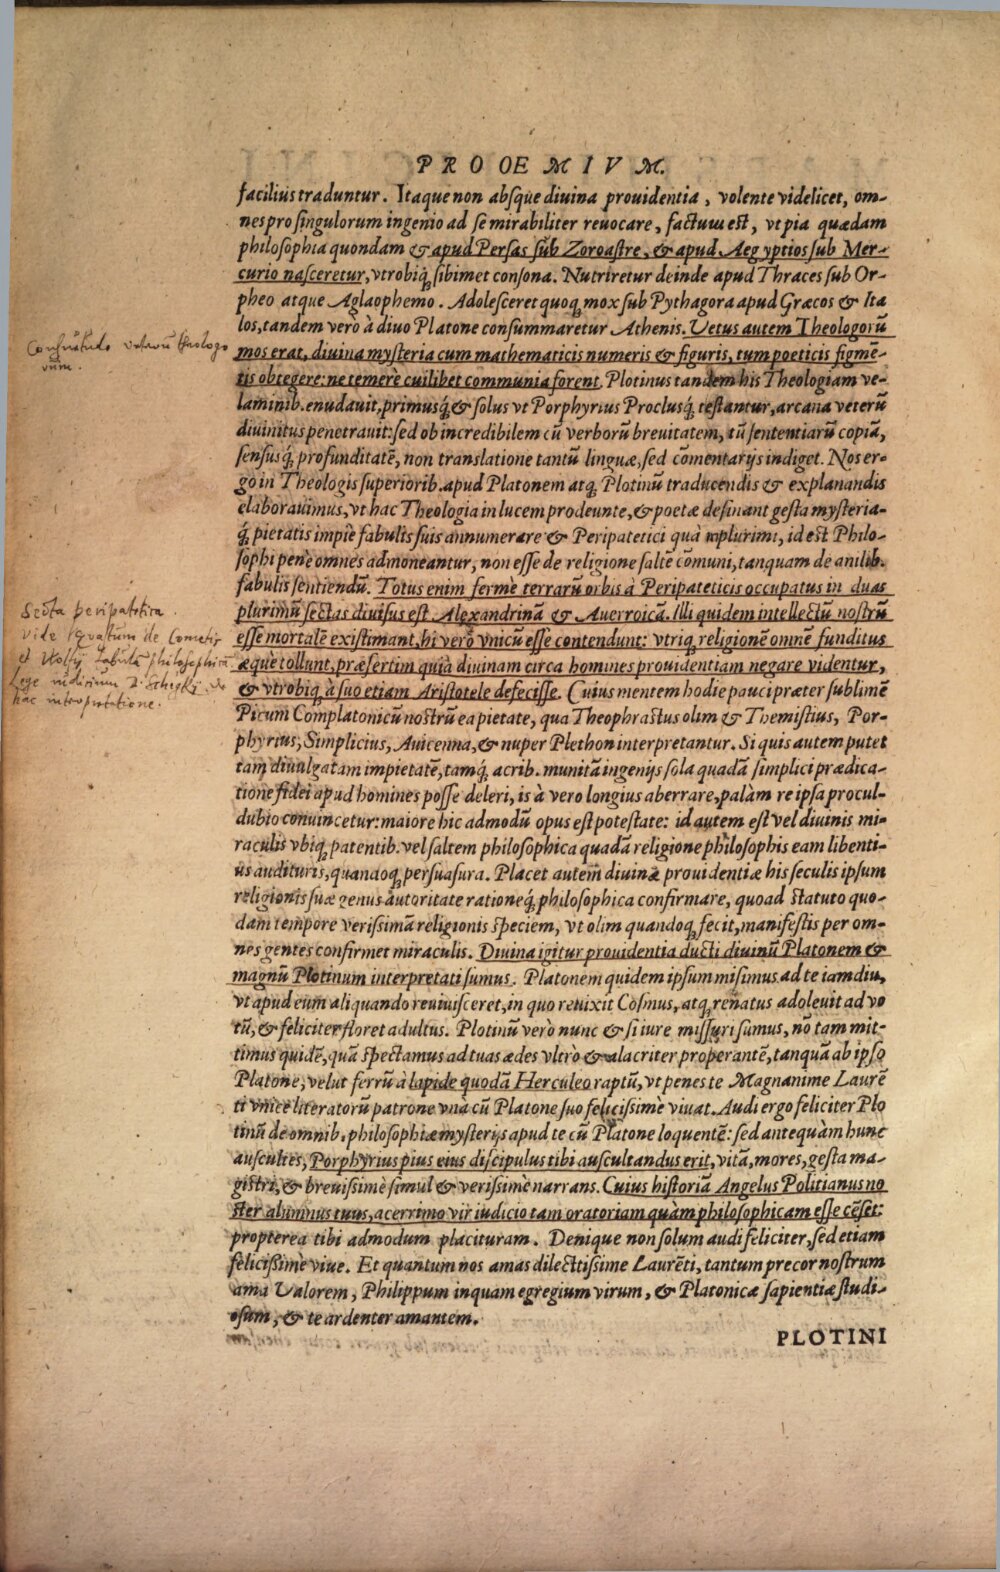 PROOEMIVM.
faciliùs traduntur. Itaque non absque diuina prouidentia, volente videlicet, om-
nes pro singulorum ingenio ad se mirabiliter reuocare, factum est, vt pia quædam
philosophia quondam & apud Persas sub Zoroastre, & apud Aegyptios sub Mer-
curio nasceretur, vtrobiq; sibimet consona. Nutriretur deinde apud Thraces sub Or-
pheo atque Aglaophemo. Adolesceret quoq; mox sub Pythagora apud Græcos & Ita
los, tandem verò à diuo Platone consummaretur Athenis. Vetus autem Theologorū
mos erat, diuina mysteria cum mathematicis numeris & figuris, tum poeticis figmē-
tis obtegere: ne temerè cuilibet communia forent. Plotinus tandem his Theologiam ve-
laminib. enudauit, primusq́; & solus vt Porphyrius Proclusq́; testantur, arcana veterū
diuinitus penetrauit: sed ob incredibilem cū verborū breuitatem, tū sententiarū copiā,
sensusq́; profunditatē, non translatione tantū linguæ, sed cōmentarijs indiget. Nos er-
go in Theologis superiorib. apud Platonem atq; Plotinū traducendis & explanandis
elaborauimus, vt hac Theologia in lucem prodeunte, & poetæ desinant gesta mysteria-
q́; pietatis impiè fabulis suis annumerare & Peripatetici quà mplurimi, id est Philo-
sophi penè omnes admoneantur, non esse de religione saltē cōmuni, tanquam de anilib.
fabulis sentiendū. Totus enim fermè terrarū orbis à Peripateticis occupatus in duas
plurimū sectas diuisus est. Alexandrinā & Auerroicā. Illi quidem intellectū nostrū
esse mortalē existimant, hi verò vnicū esse contendunt: vtriq; religionē omnē funditus
æquè tollunt, præsertim quia diuinam circa homines prouidentiam negare videntur,
& vtrobiq; à suo etiam Aristotele defecisse. Cuius mentem hodie pauci præter sublimē
Picum Complatonicū nostrū ea pietate, qua Theophrastus olim & Themistius, Por-
phyrius, Simplicius, Auicenna, & nuper Plethon interpretantur. Si quis autem putet
tam diuulgatam impietatē, tamq́; acrib. munitā ingenijs sola quadā simplici prædica-
tione fidei apud homines posse deleri, is à vero longius aberrare, palàm re ipsa procul-
dubio conuincetur: maiore hic admodū opus est potestate: id autem est vel diuinis mi-
raculis vbiq; patentib. vel saltem philosophica quadā religione philosophis eam libenti-
ùs audituris, quandoq; persuasura. Placet autem diuinæ prouidentiæ his seculis ipsum
religionis suæ genus autoritate rationeq́; philosophica confirmare, quoad statuto quo-
dam tempore verissimā religionis speciem, vt olim quandoq; fecit, manifestis per om-
nes gentes confirmet miraculis. Diuina igitur prouidentia ducti diuinū Platonem &
magnū Plotinum interpretati sumus. Platonem quidem ipsum misimus ad te iamdiu,
vt apud eum aliquando reuiuisceret, in quo reuixit Cosmus, atq; renatus adoleuit ad vo
tū, & feliciter floret adultus. Plotinū verò nunc & si iure missuri sumus, nō tam mit-
timus quidē, quā spectamus ad tuas ædes vltrò & alacriter properantē, tanquā ab ipso
Platone, velut ferrū à lapide quodā Herculeo raptū, vt penes te Magnanime Laurē
ti vnice literatorū patrone vnà cū Platone suo felicissimè viuat. Audi ergo feliciter Plo
tinū de omnib. philosophiæ mysterijs apud te cū Platone loquentē: sed antequàm hunc
auscultes, Porphyrius pius eius discipulus tibi auscultandus erit, vitā, mores, gesta ma-
gistri, & breuissimè simul & verissimè narrans. Cuius historiā Angelus Politianus no
ster alumnus tuus, acerrimo vir iudicio tam oratoriam quàm philosophicam esse cēset:
propterea tibi admodum placituram. Denique non solum audi feliciter, sed etiam
felicissimè viue. Et quantum nos amas dilectissime Laurēti, tantum precor nostrum
ama Valorem, Philippum inquam egregium virum, & Platonicæ sapientiæ studi-
osum, & te ardenter amantem.
PLOTINI
Consuetudo veterū theologo
rum.
Secta peripatetica.
vide Erastum de Cometis
et Wolfij tabulā philosophicā
Lege iudicium D. Schegkij de
hac interpretatione.